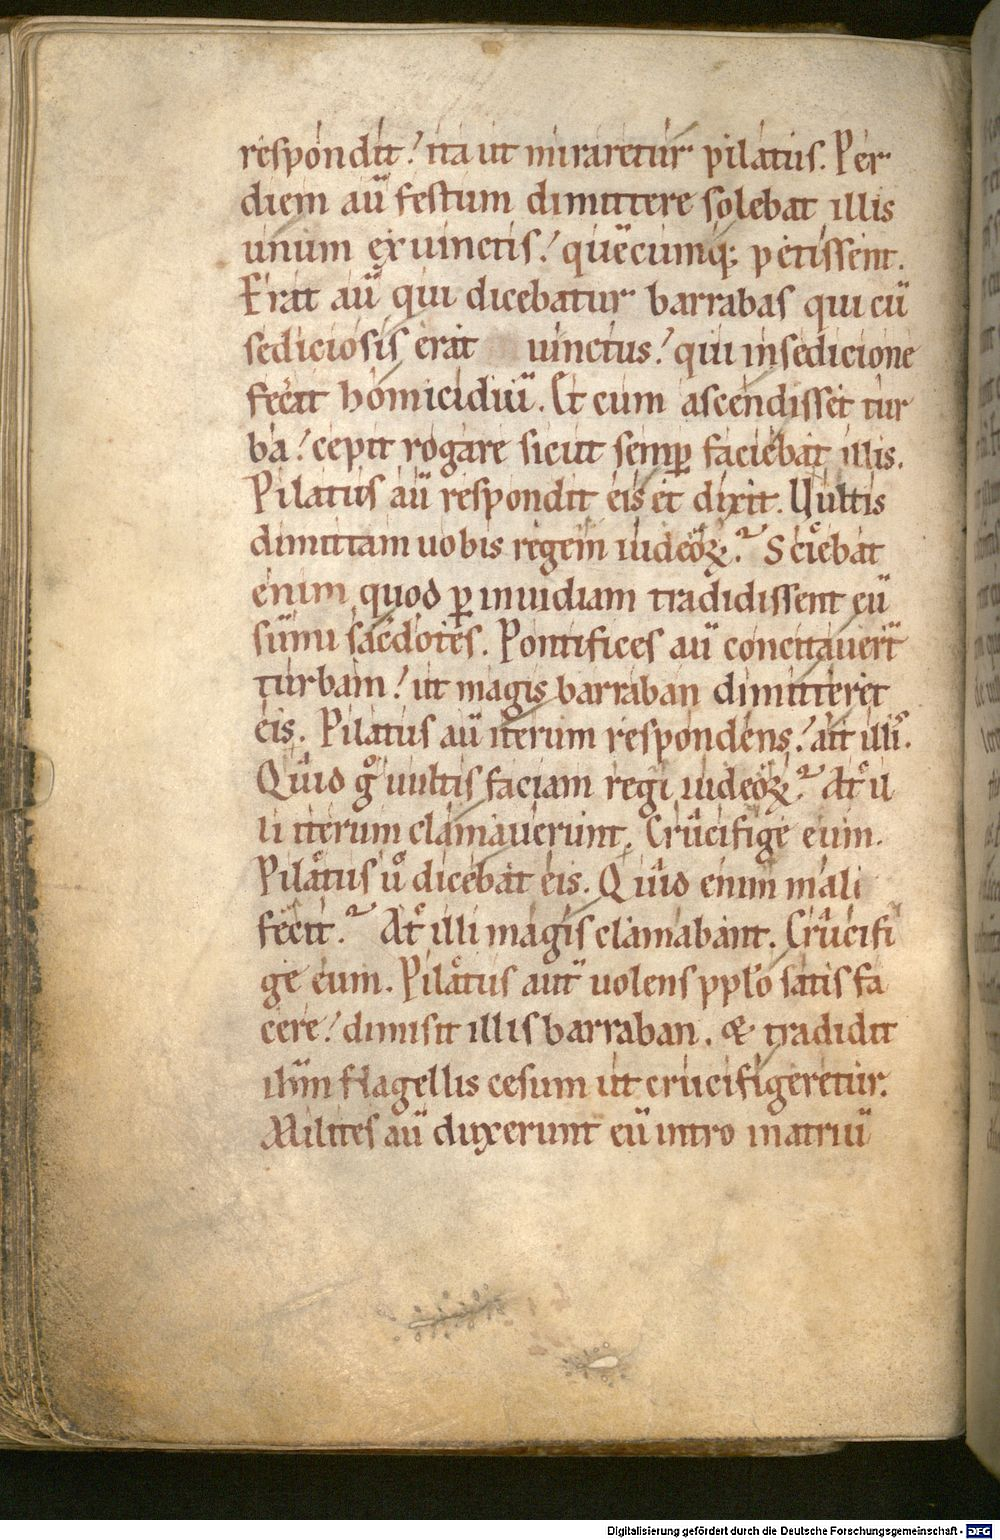 respondit. ita ut miraretur pilatus. Per
diem aū festum dimittere solebat illis
unum ex uinctis. quēcumq; petissent.
Erat aū qui dicebatur barrabas qui cū
sediciosis erat uinctus. qui in sedicione
fecat homicidiū. Et cum ascendisset tur
ba. cepit rogare sicut semꝑ faciebat illis.
Pilatus aū respondit eis et dixit. Uultis
dimittam uobis regem iudeoꝝ? Sciebat
enim quod ꝑ inuidiam tradidissent eū
sūmi sacdotes. Pontifices aū concitauert̄
turbam. ut magis barraban dimitteret
eis. Pilatus aū iterum respondens. ait illis.
Quid gͦ uultis faciam regi iudeoꝝ? At il
li iterum clamauerunt. Crucifige eum.
Pilatus uͦ dicebat eis. Quid enim mali
fecit? At illi magis clamabant. Crucifi
ge eum. Pilatus aut̄ uolens pplo satis fa
cere. dimisit illis barraban. & tradidit
ihm̄ flagellis cesum ut crucifigeretur.
Milites aū duxerunt eū intro in atriū
Digitalisierung gefördert durch die Deutsche Forschungsgemeinschaft - DFG